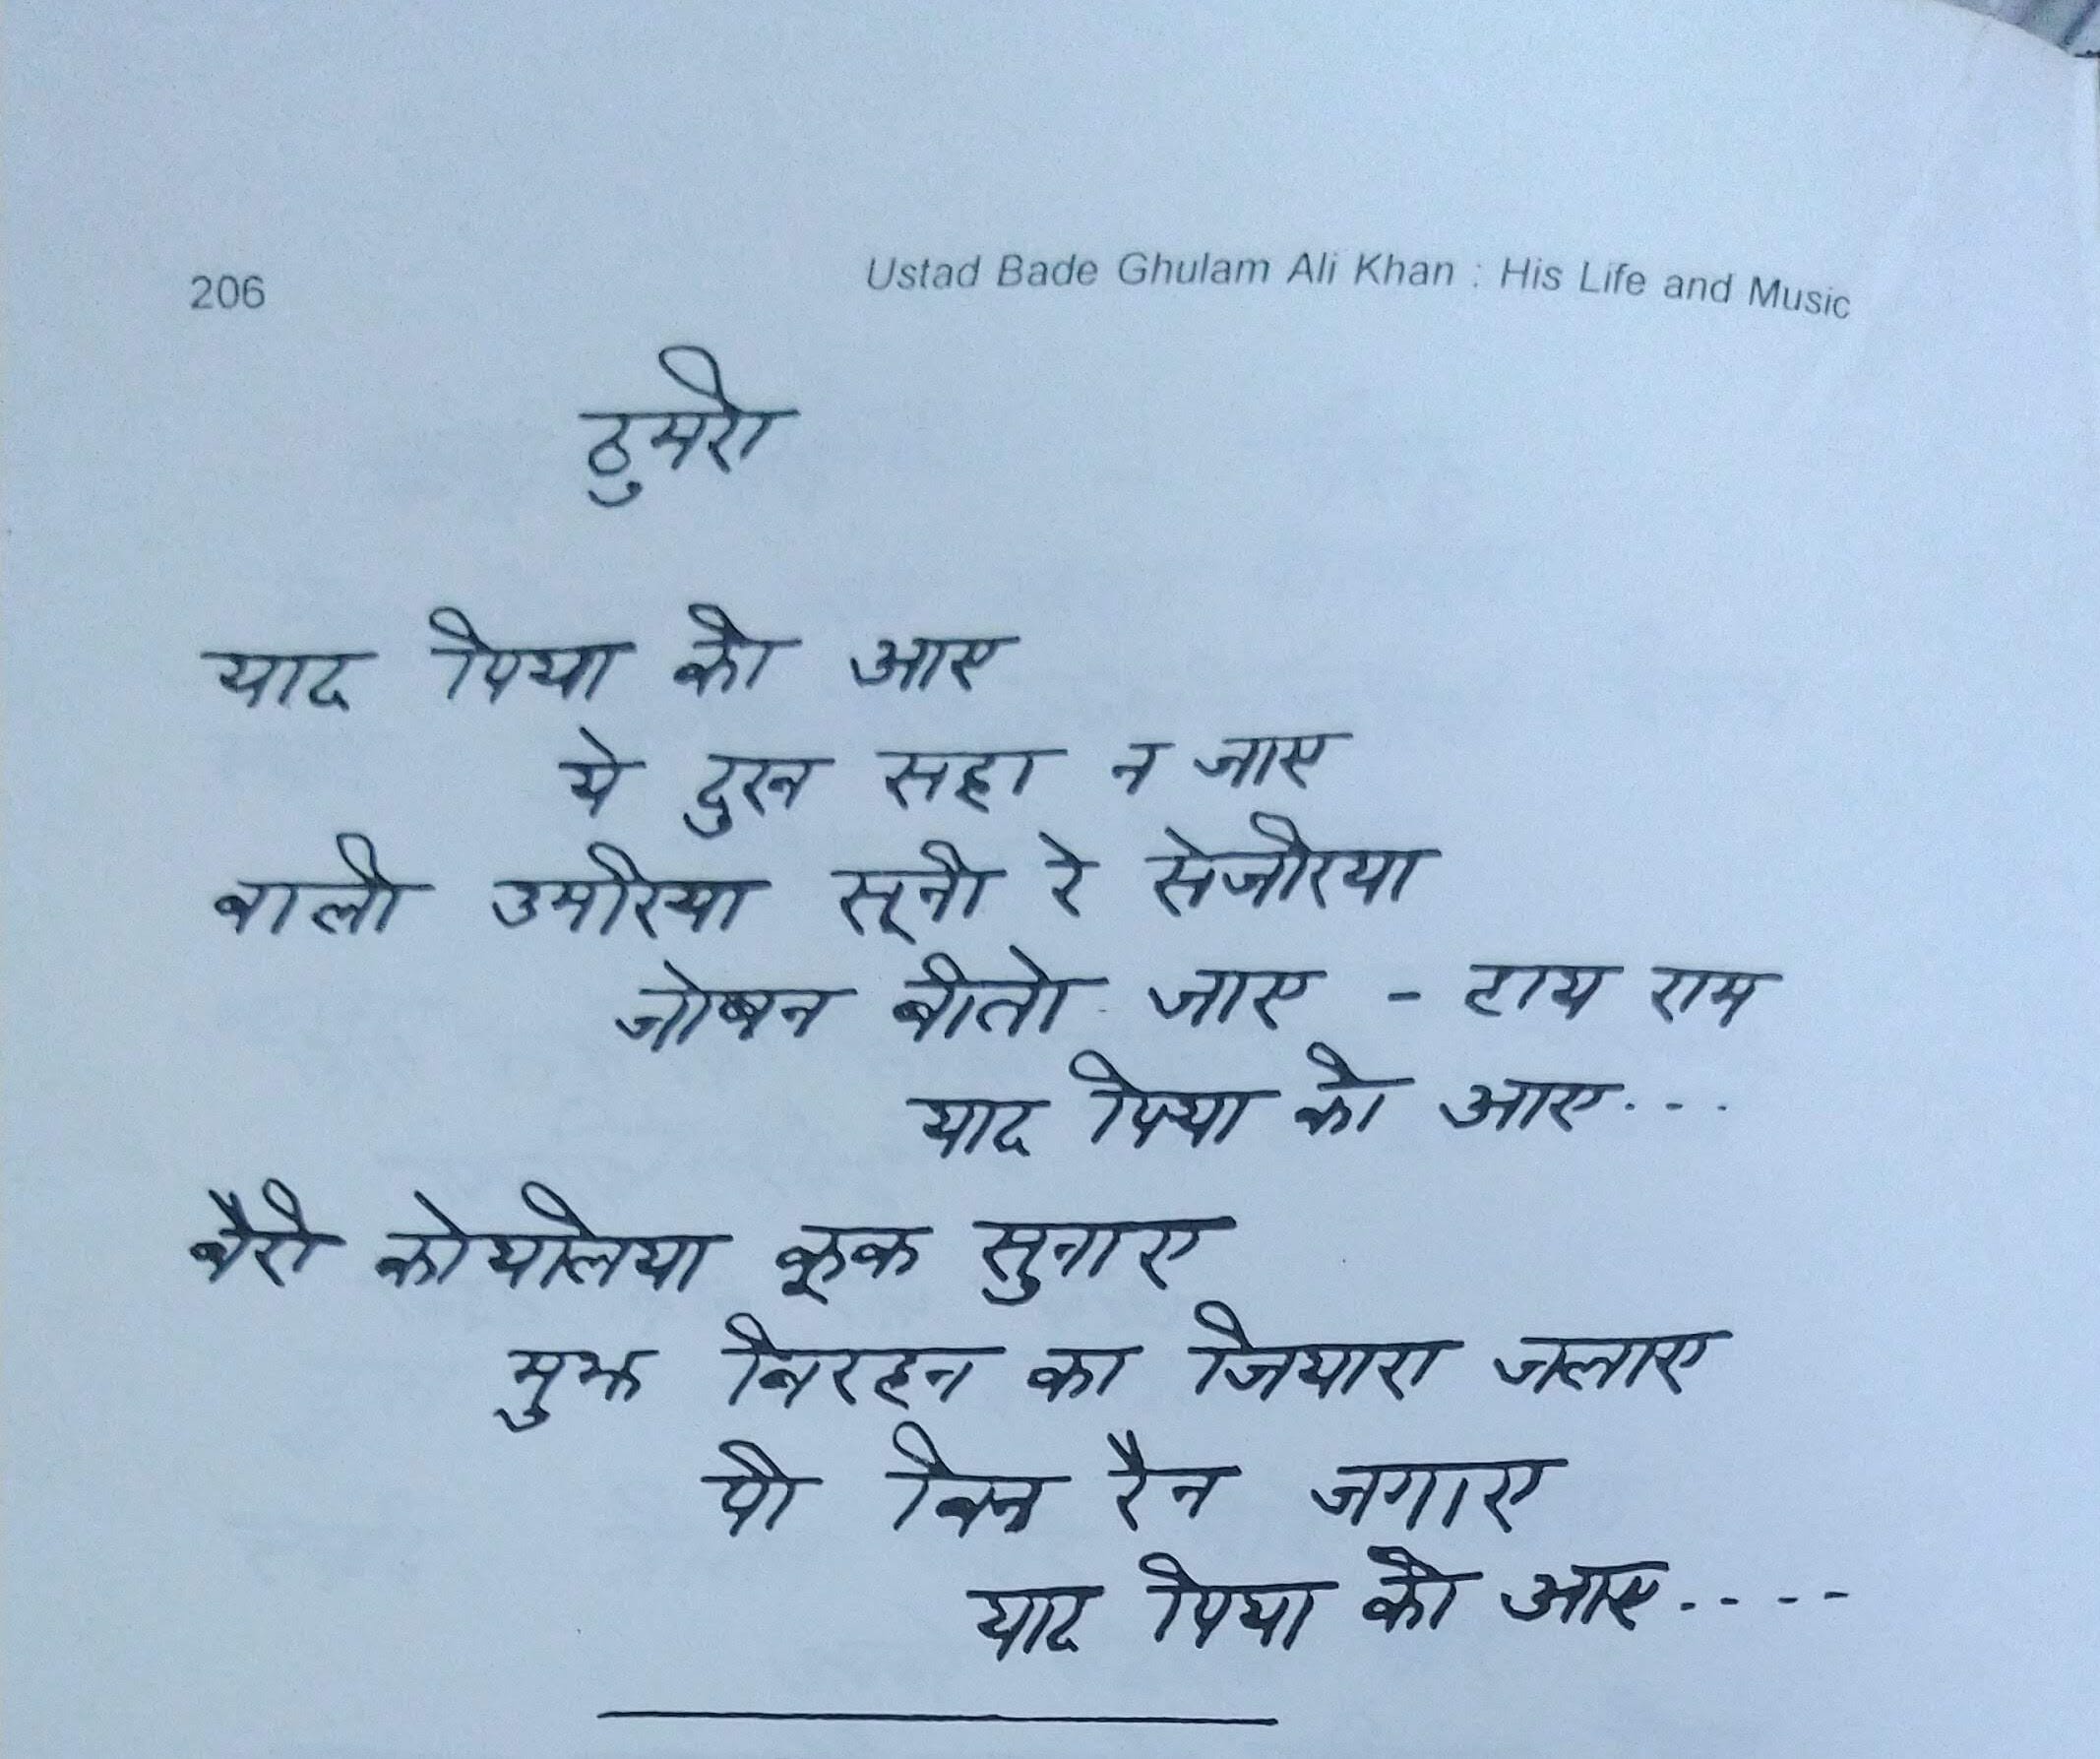 206 Ustad Bade Ghulam Ali Khan : His Life and Music
ठुमरी
याद पिया की आए
ये दुख सहा न जाए
बाली उमरिया सूनी रे सेजरिया
जोबन बीतो जाए - हाय राम
याद पिया की आए...
बैरी कोयलिया कूक सुनाए
मुझ बिरहन का जियारा जलाए
पी बिन रैन जगाए
याद पिया की आए....